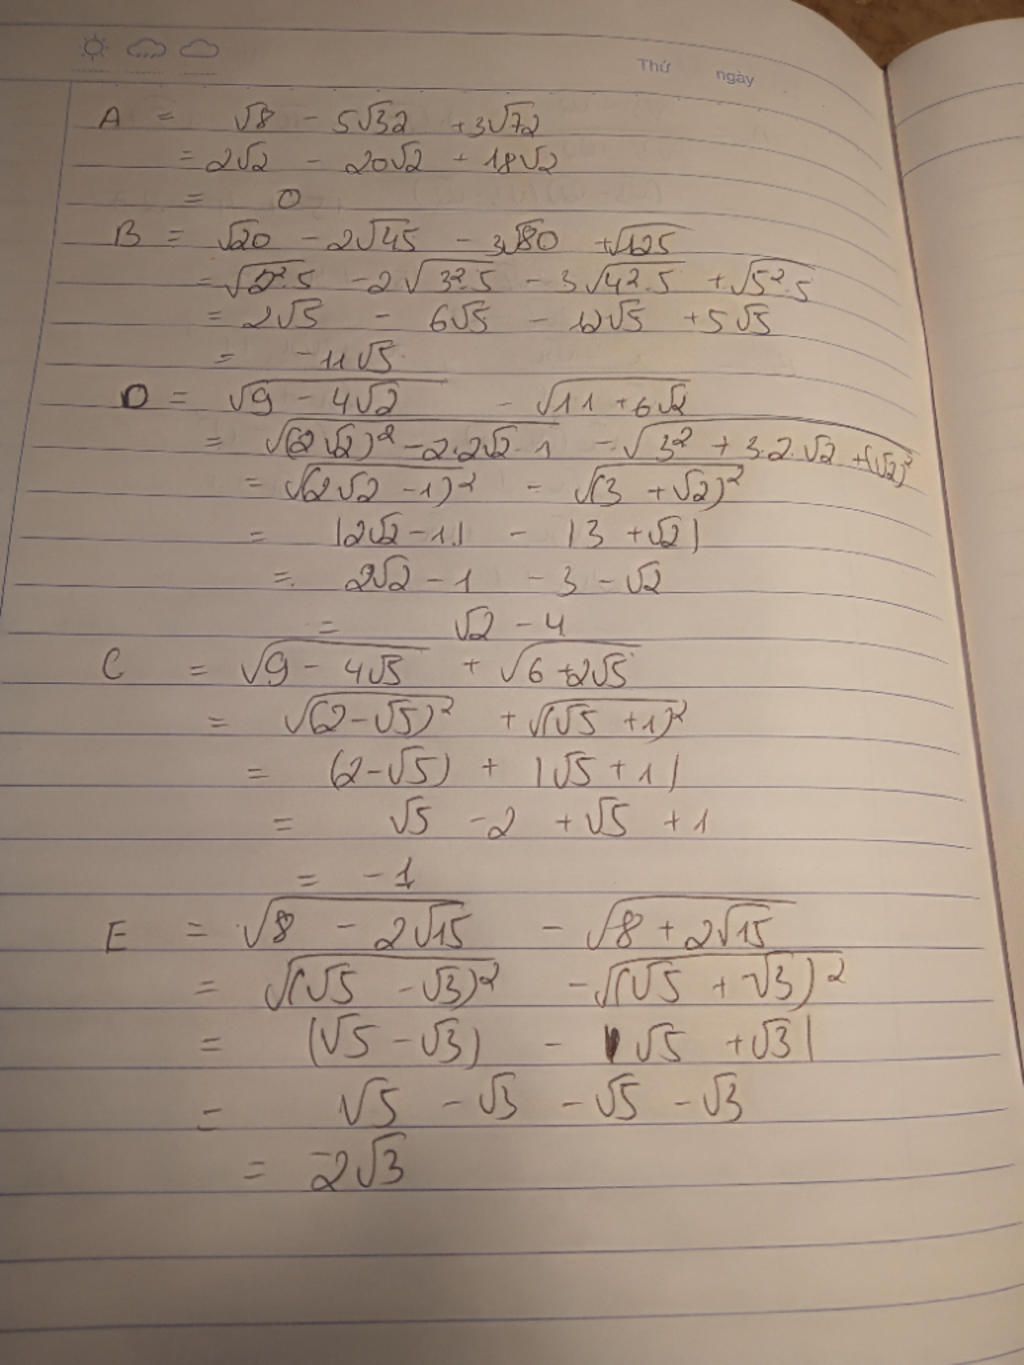 Thứ ngày
A = √8 - 5√32 + 3√72
= 2√2 - 20√2 + 18√2
= 0
B = √20 - 2√45 - 3√80 + √125
= √2².5 - 2√3².5 - 3√4².5 + √5².5
= 2√5 - 6√5 - 12√5 + 5√5
= -11√5
D = √9 - 4√2 - √11 + 6√2
= √(2√2)² - 2.2√2.1 - √3² + 3.2.√2 + (√2)²
= √(2√2 - 1)² - √(3 + √2)²
= |2√2 - 1| - |3 + √2|
= 2√2 - 1 - 3 - √2
= √2 - 4
C = √9 - 4√5 + √6 + 2√5
= √(2 - √5)² + √(√5 + 1)²
= (2 - √5) + |√5 + 1|
= √5 - 2 + √5 + 1
= -1
E = √8 - 2√15 - √8 + 2√15
= √(√5 - √3)² - √(√5 + √3)²
= (√5 - √3) - |√5 + √3|
= √5 - √3 - √5 - √3
= -2√3